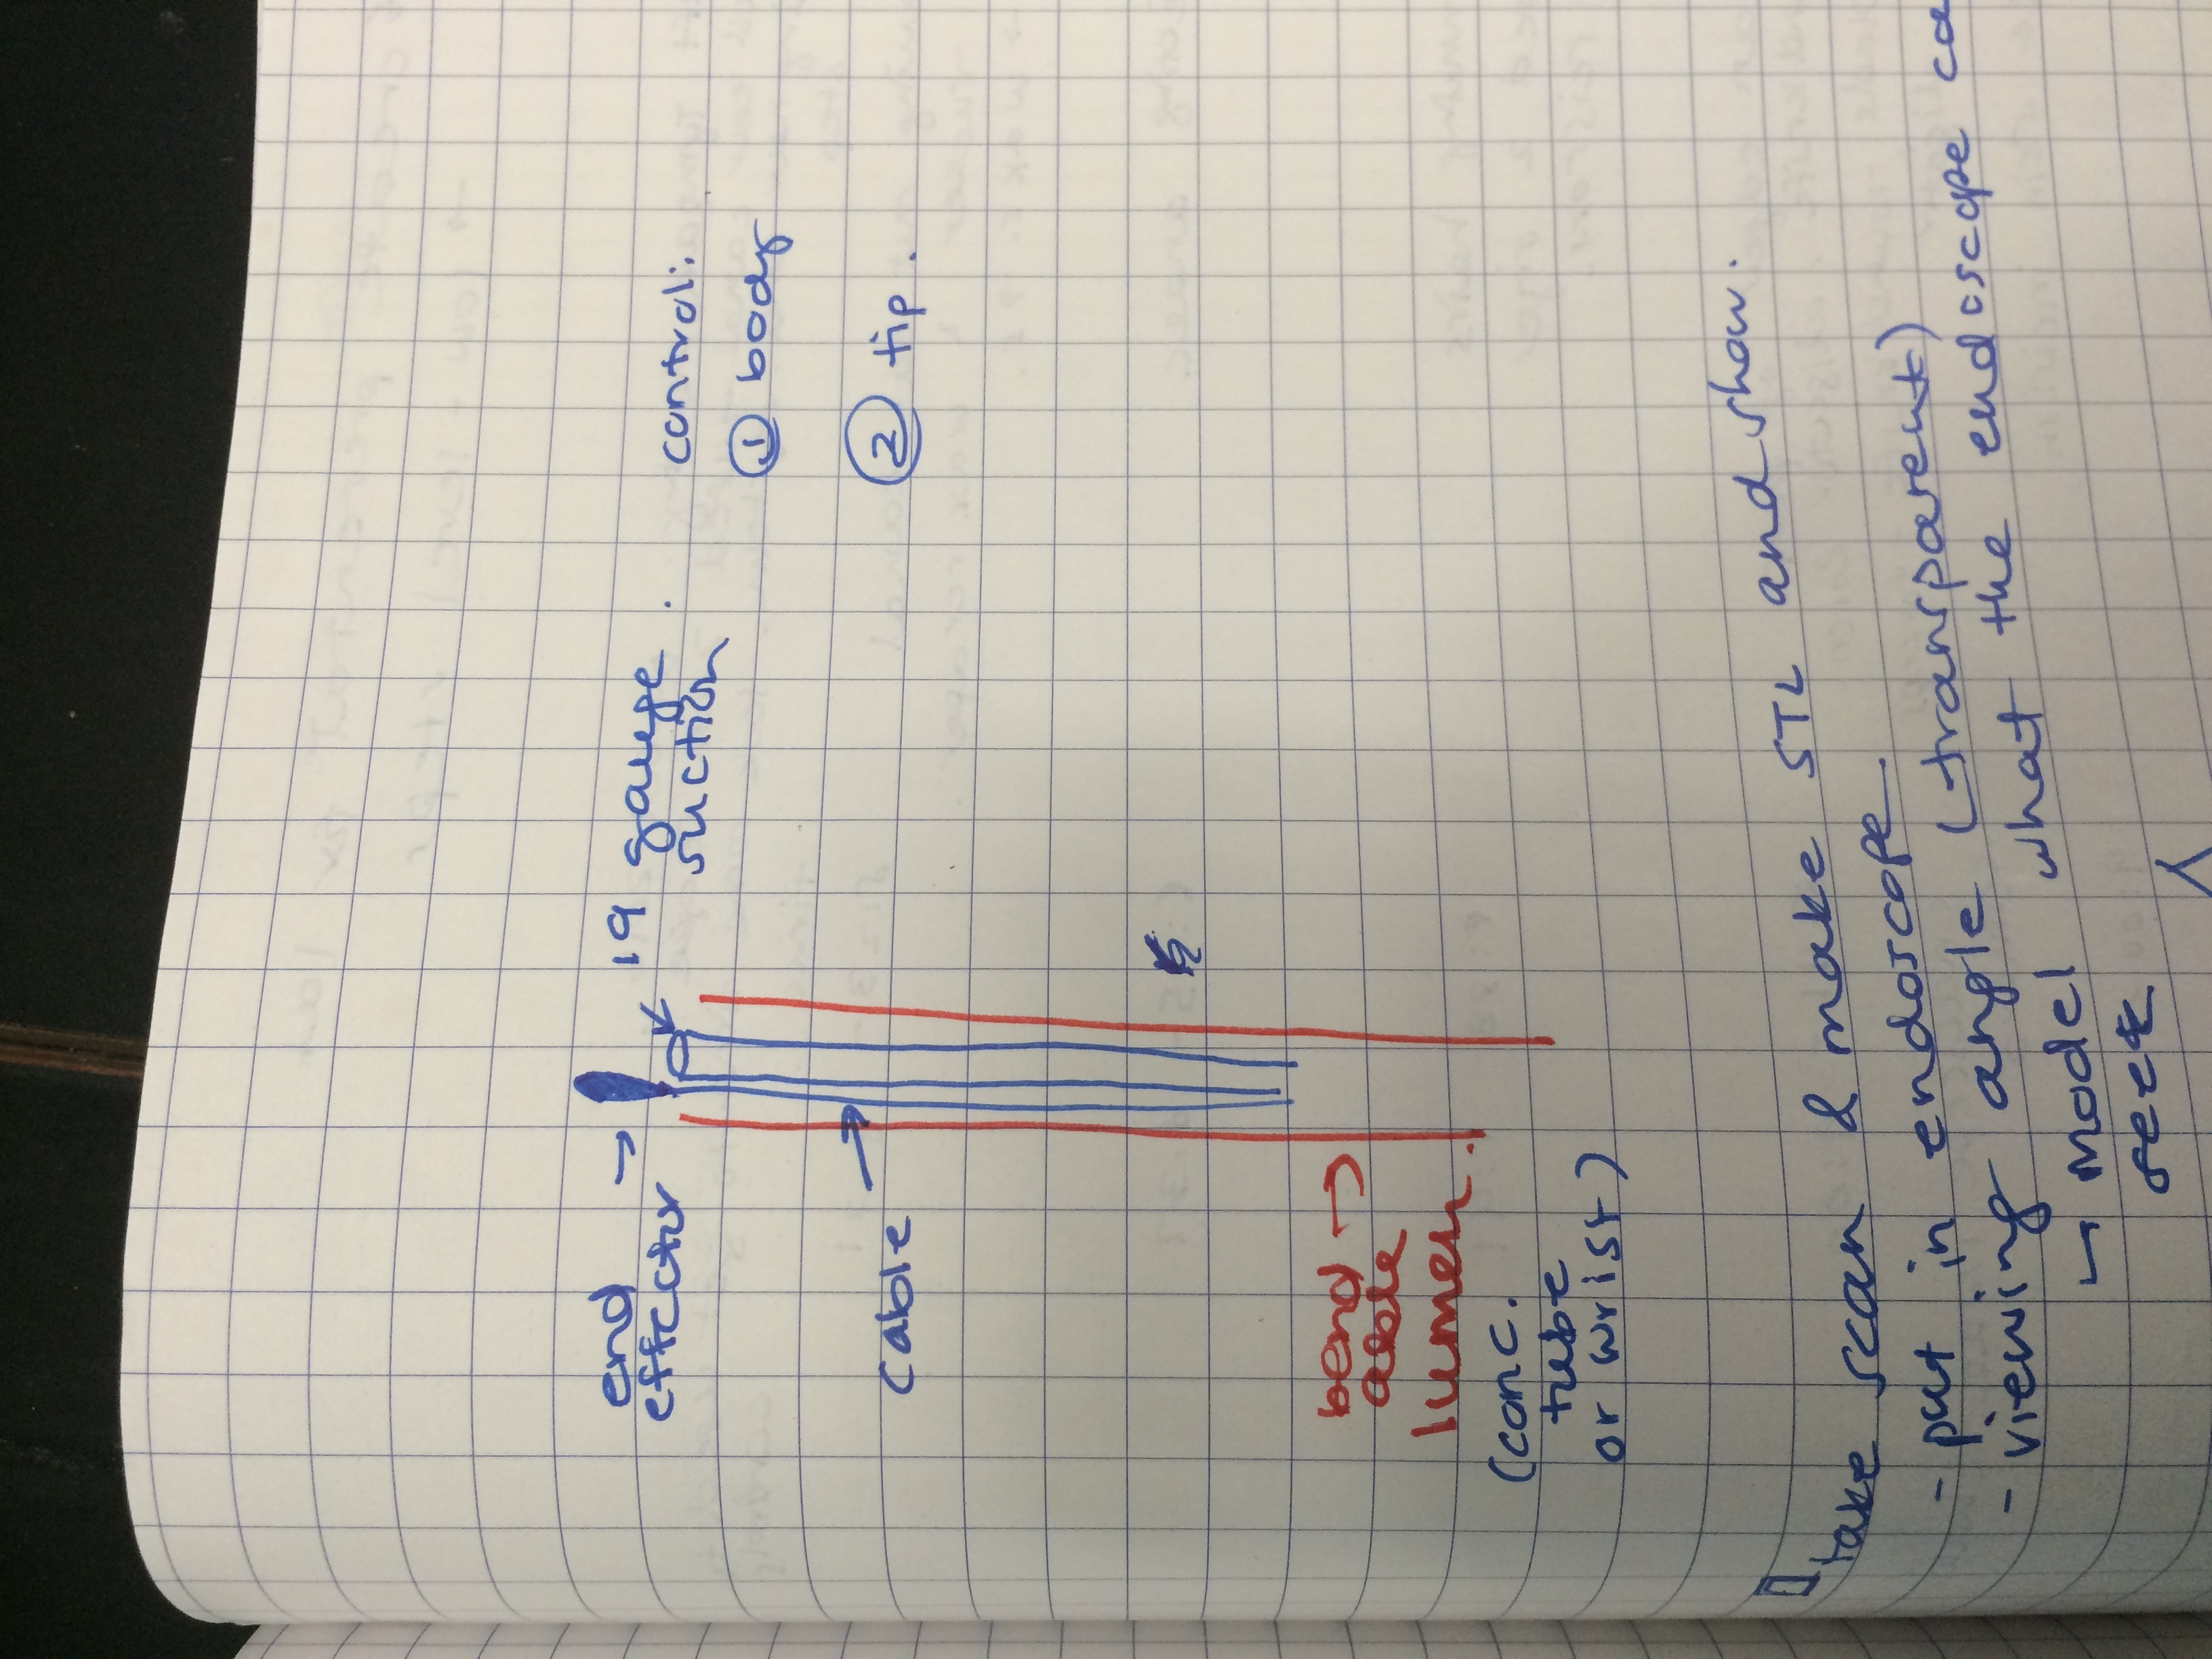 end
effector →
19 gauge.
suction
control:
① body
② tip.
cable
bend →
able
lumen.
(conc.
tube
or wrist)
Take scan & make STL and show.
- put in endoscope
- viewing angle (transparent)
↳ model what the endoscope ca
see